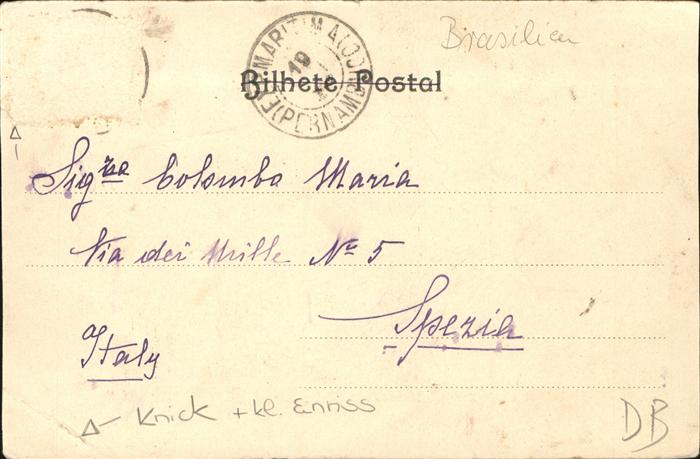 Brasilien
MARITIMA
(PERNAMB
19
Bilhete Postal
Sigra Colombo Maria
Via dei Mille No 5
Spezia
Italy
Knick + kl. Einriss
DB